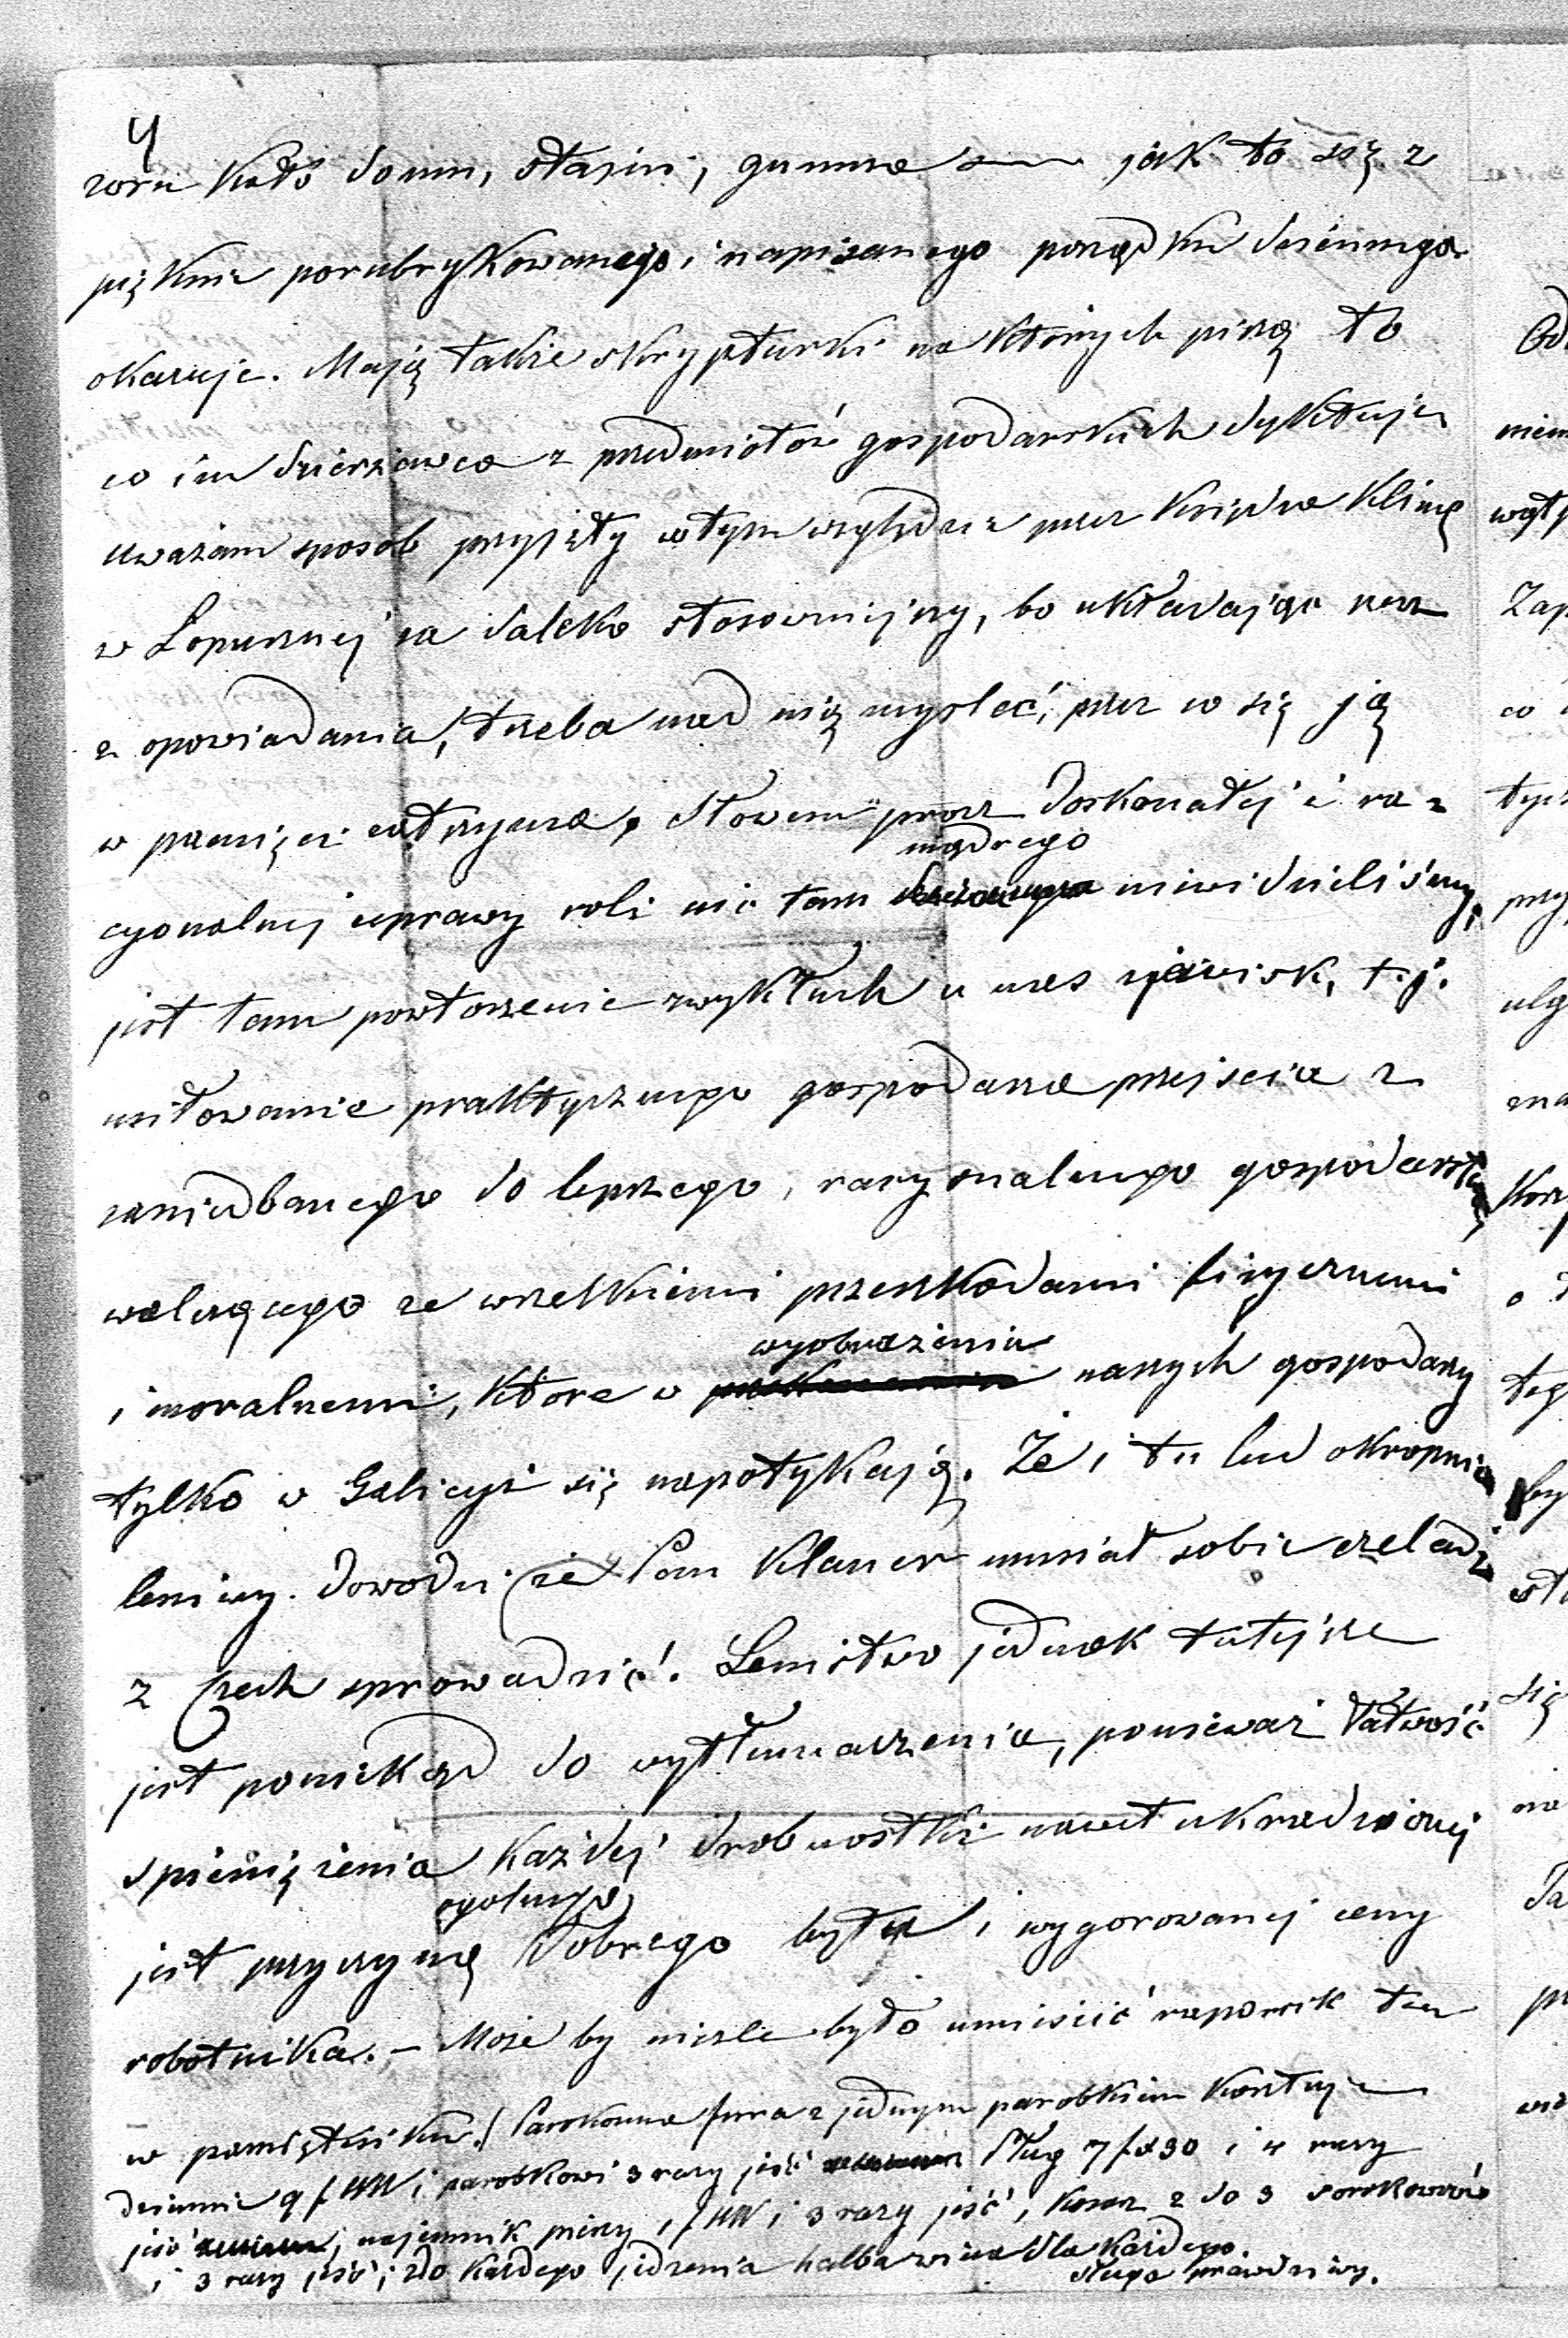 4
zoru koło domu, stajni, gumna jak to się z
pięknie porubrykowanego i napisanego porządku dziennego
okazuje. Mają także skrypturki na których piszą to
co im dzierżawca z przedmiotów gospodarskich dyktuje
Uważam sposób przyjęty w tym względzie przez Księdza Klimę
w Łopusznej za daleko stosowniejszy, bo układając rzecz
z opowiadania, trzeba nad nią myśleć, przez co się ją
w pamięci zatrzyma. Słowem prócz doskonałej i ra=
cyonalnej uprawy roli nic tam mądrego niewidzieliśmy,
jest tam powtorzenie zwykłych u nas zjawisk, t.j.
usiłowanie praktycznego gospodarza przejscia z
zaniedbanego do lepszego, racyonalnego gospodarstwa
walczącego ze wszelkiemi przeszkodami fizycznemi
i moralnemi, które w wyobrażenia naszych gospodarzy
tylko w Galicyi się napotykają. Że i tu lud okropnie
leniwy. dowodzi że Pan Klauer musiał sobie czeladź
z Czech sprowadzić. Lenistwo jednak tutejsze
jest poniekąd do wytłumaczenia, ponieważ łatwość
spieniężenia każdej drobnostki nawet ukradzionej
jest przyczyną ogolnego dobrego bytu i wygorowanej ceny
robotnika. – Może by niezle było umieścić zapomnik ten
w pamiętniku. / Parokonna fura z jednym parobkiem kosztuje
dziennie 9 f WW i parobkowi 3 razy jeść Pług 7 f x30 i 4 razy
jeść, najemnik pieszy 1 f WW i 3 razy jeść, kosarz 2 do 3 sorokowców
i 3 razy jeść; zdo każdego jedzenia halba wina dla każdego.
sługa prawdziwy.
Zap
co